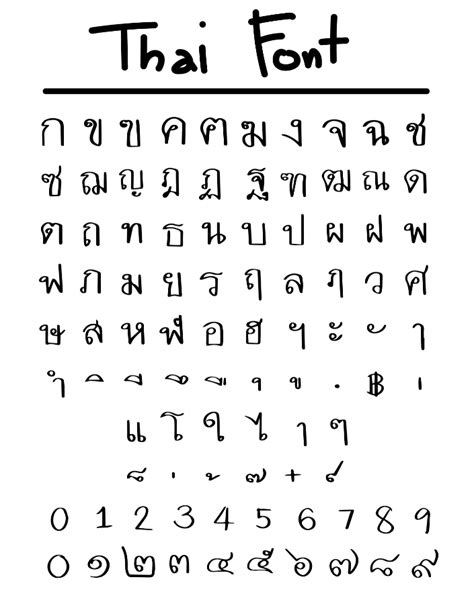 Thai Font
ก ข ฃ ค ฅ ฆ ง จ ฉ ช
ซ ฌ ญ ฎ ฏ ฐ ฑ ฒ ณ ด
ต ถ ท ธ น บ ป ผ ฝ พ
ฟ ภ ม ย ร ฤ ล ฦ ว ศ
ษ ส ห ฬ อ ฮ ฯ ะ ั า
ำ ิ ี ึ ื ุ ู ฺ ฿ เ
แ โ ใ ไ ๅ ๆ
็ ่ ้ ๊ ๋ ์
0 1 2 3 4 5 6 7 8 9
๐ ๑ ๒ ๓ ๔ ๕ ๖ ๗ ๘ ๙